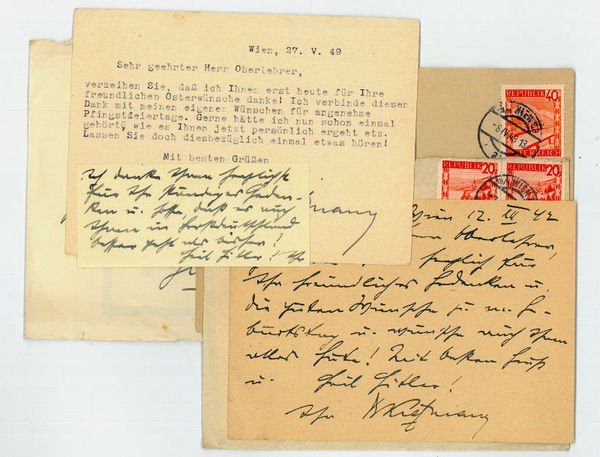 Wien, 27. V. 49
Sehr geehrter Herr Oberlehrer,
verzeihen Sie, daß ich Ihnen erst heute für Ihre
freundlichen Osterwünsche danke! Ich verbinde diesen
Dank mit meinen eigenen Wünschen für angenehme
Pfingstfeiertage. Gerne hätte ich nun schon einmal
gehört, wie es Ihnen jetzt persönlich ergeht etz.
Lassen Sie doch diesbezüglich einmal etwas hören!
Mit besten Grüßen
Ich danke Ihnen herzlichst
für Ihr
u. hoffe, daß es auch
Ihnen in Großdeutschland
besser geht als bisher!
Heil Hitler! Ihr
REPUBLIK 40
ÖSTERREICH
REPUBLIK 20
REPUBLIK 20
Wien 12. III 42
Oberlehrer,
herzlich für
Ihr freundliches Gedenken u.
die guten Wünsche z. m. Ge-
burtstag u. wünsche auch Ihnen
alles Gute! Mit besten Gruß
u. Heil Hitler!
Ihr